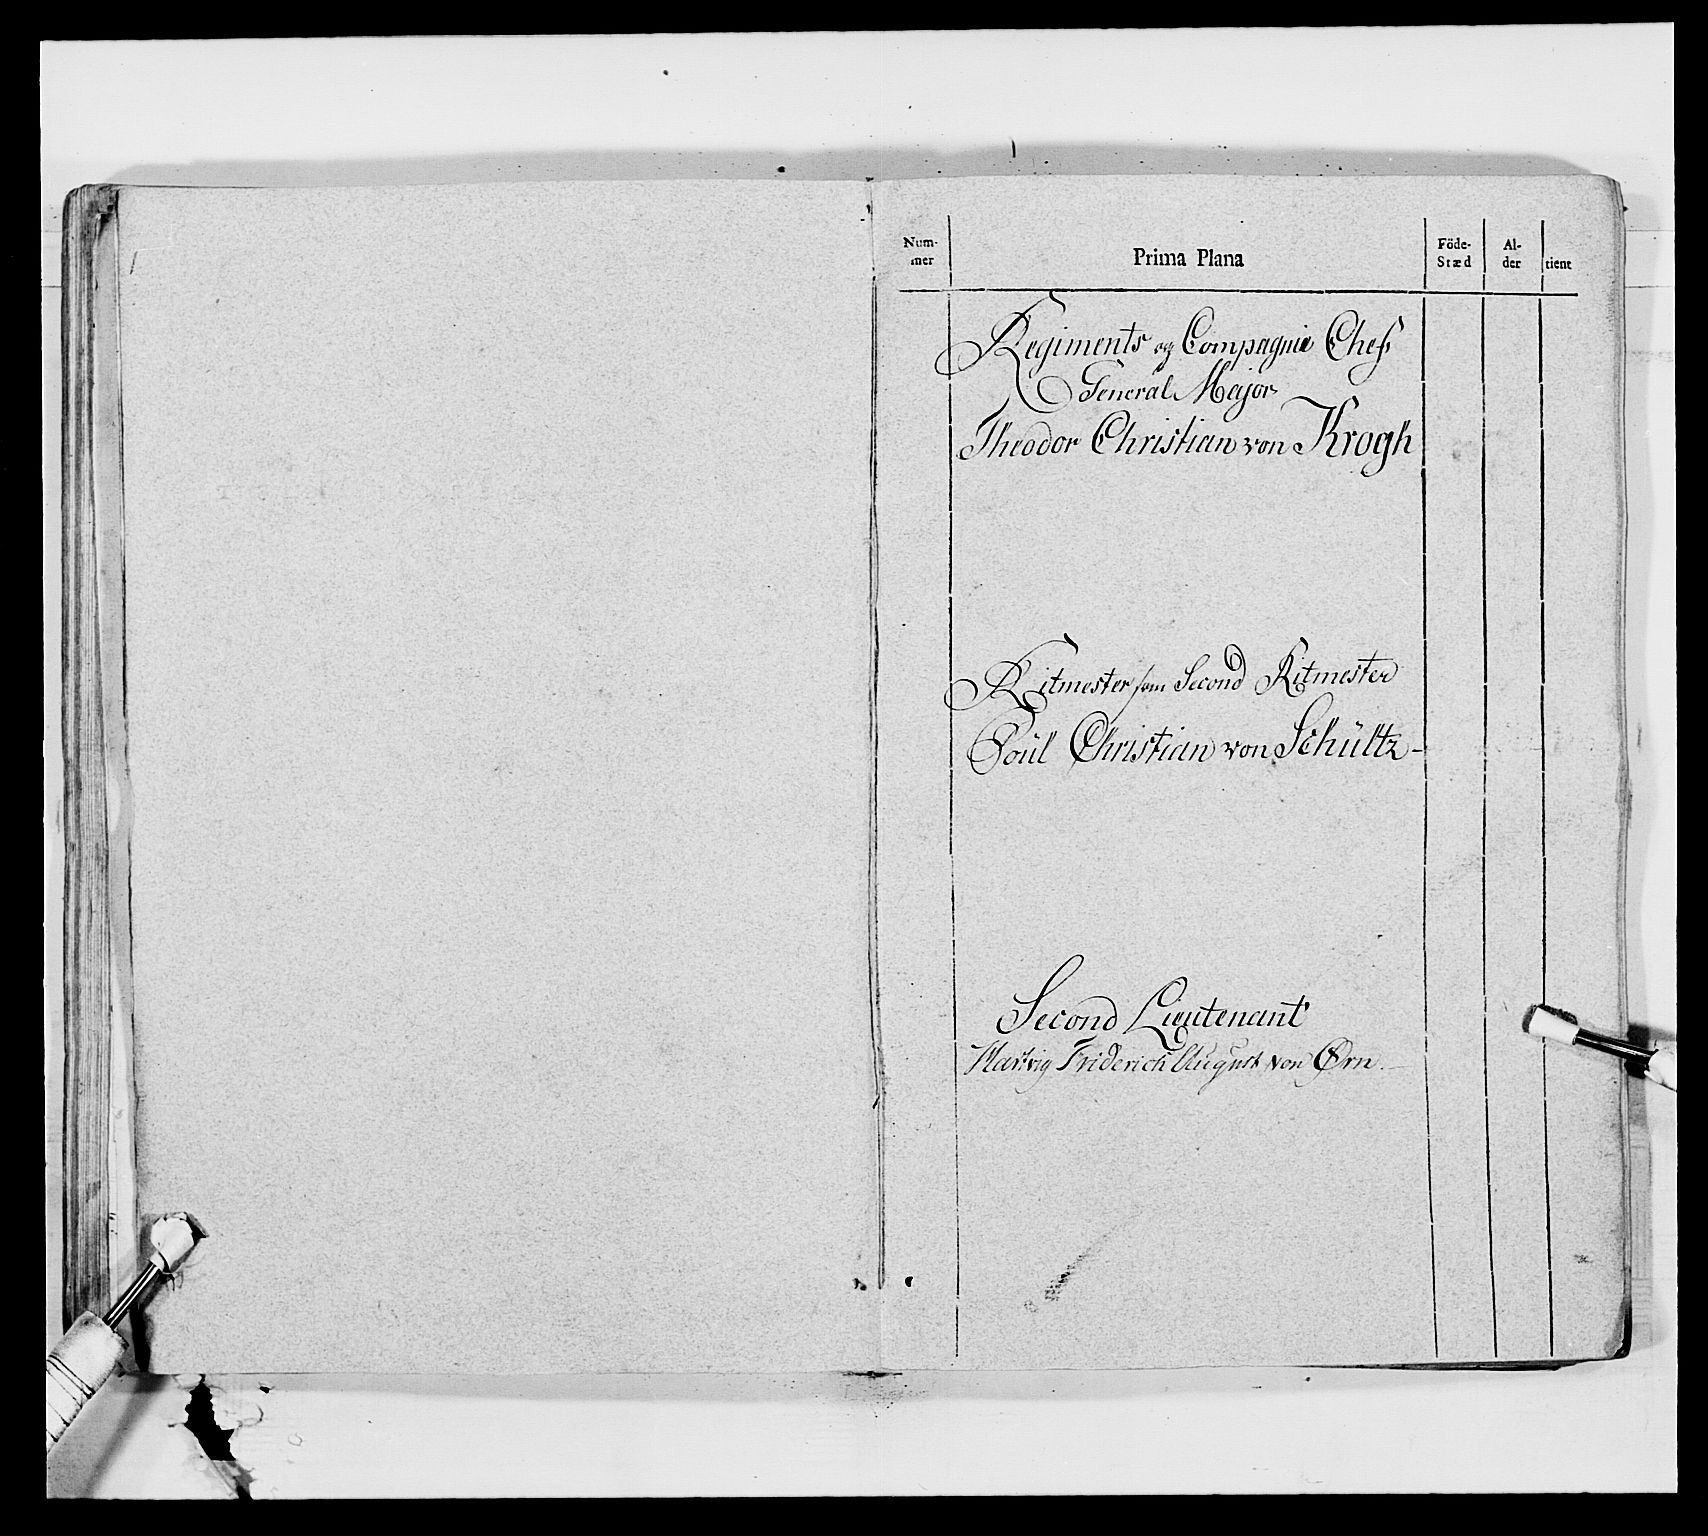 Num-
mer
Prima Plana
Föde-
Stæd
Al-
der
tient
Regiments og Compagnie Chef
General Major
Theodor Christian von Krogh
Ritmester som Second Ritmester
Poül Christian von Schültz-
Second Lieutenant
Hartvig Friderich August von Ørn.-